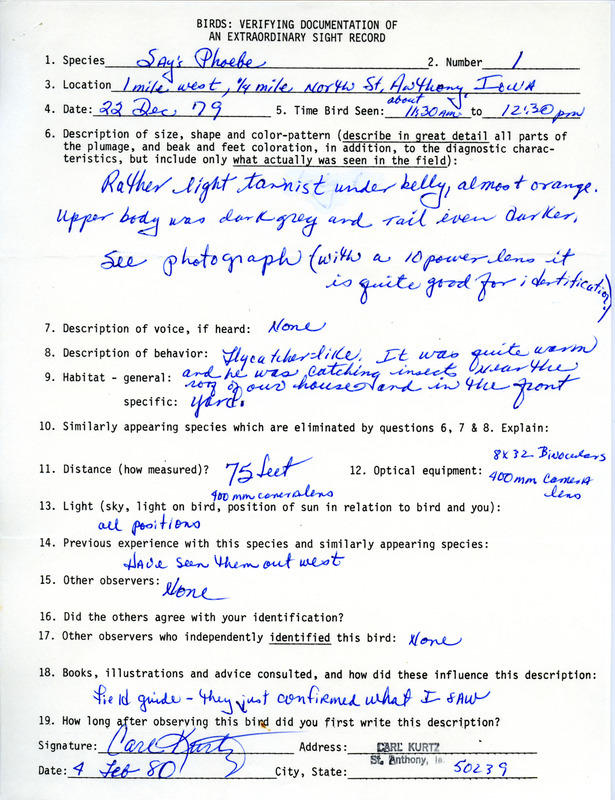 BIRDS: VERIFYING DOCUMENTATION OF
AN EXTRAORDINARY SIGHT RECORD
1. Species SAy's Phoebe 2. Number 1
3. Location 1 mile west, 1/4 mile North St. Anthony, Iowa
4. Date: 22 Dec 79 5. Time Bird Seen: about 11:30 AM to 12:30 pm
6. Description of size, shape and color-pattern (describe in great detail all parts of
the plumage, and beak and feet coloration, in addition, to the diagnostic charac-
teristics, but include only what actually was seen in the field):
Rather light tannist under belly, almost orange.
Upper body was dark grey and tail even darker.
See photograph (with a 10 power lens it
is quite good for identification.)
7. Description of voice, if heard: None
8. Description of behavior: Flycatcher-like. It was quite warm
9. Habitat - general: and he was catching insects near the
roof of our house and in the front
specific: yard.
10. Similarly appearing species which are eliminated by questions 6, 7 & 8. Explain:
11. Distance (how measured)? 75 feet 12. Optical equipment: 8X32 Binoculars
400 mm camera lens 400 mm camera
lens
13. Light (sky, light on bird, position of sun in relation to bird and you):
all positions
14. Previous experience with this species and similarly appearing species:
Have seen them out west
15. Other observers: None
16. Did the others agree with your identification?
17. Other observers who independently identified this bird: None
18. Books, illustrations and advice consulted, and how did these influence this description:
Field guide - they just confirmed what I saw
19. How long after observing this bird did you first write this description?
Signature: Carl Kurtz Address: CARL KURTZ
St. Anthony, Ia.
Date: 4 Feb 80 City, State: 50239